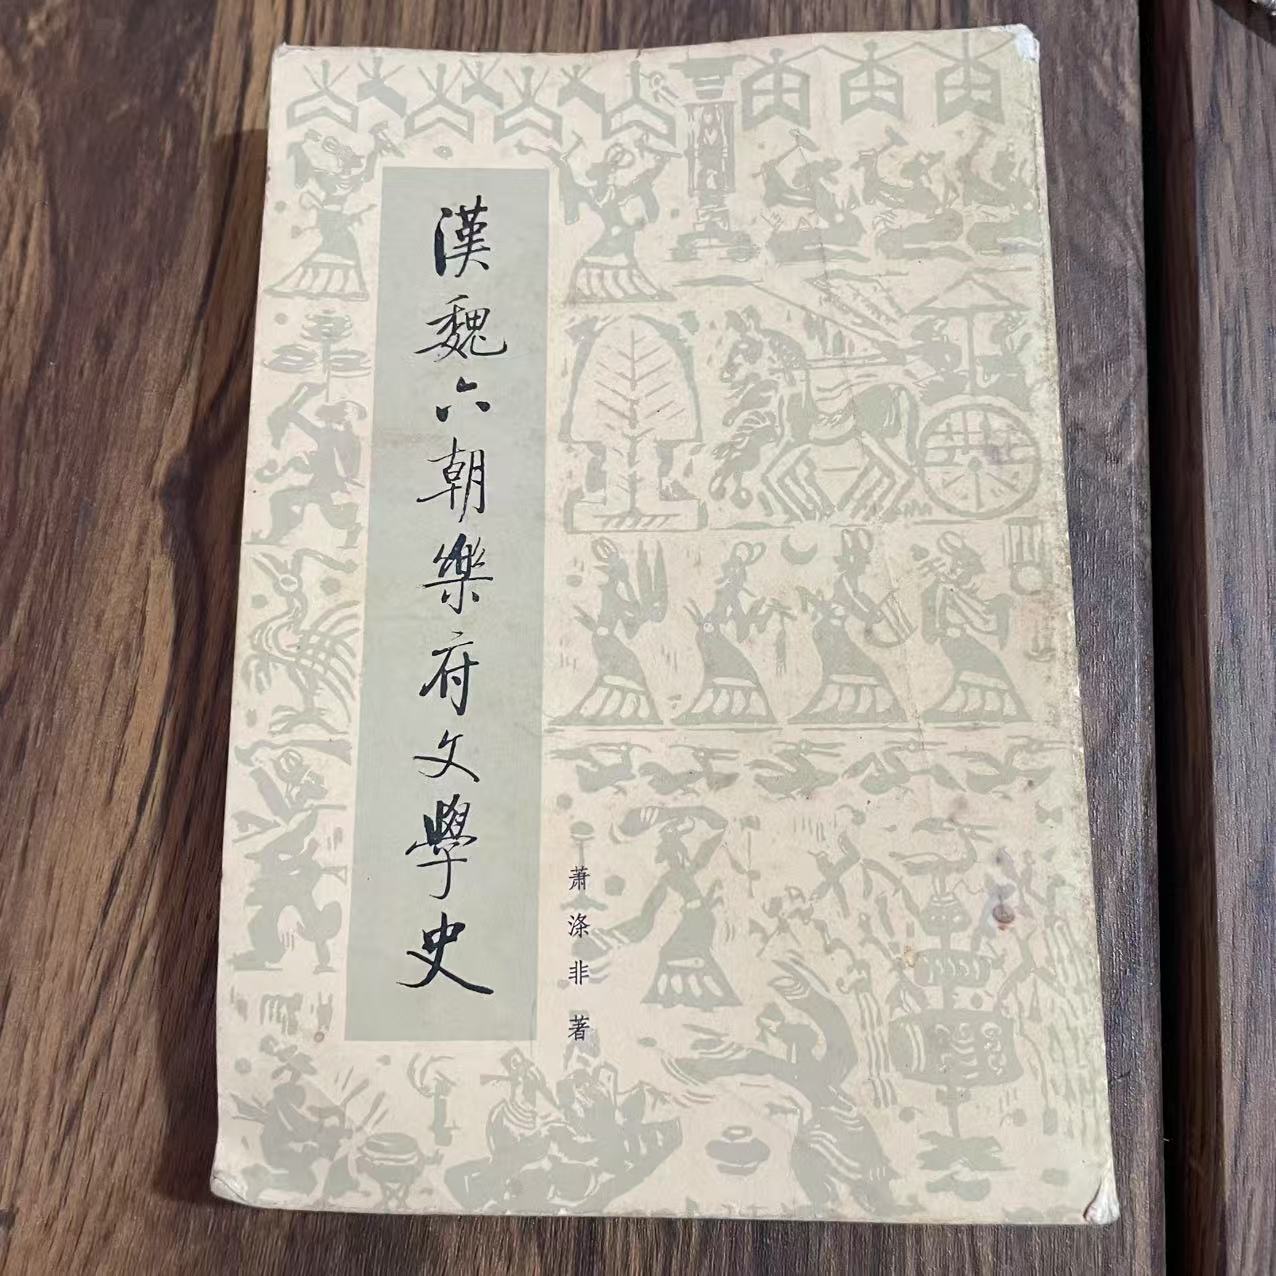 漢魏六朝樂府文學史
萧涤非著